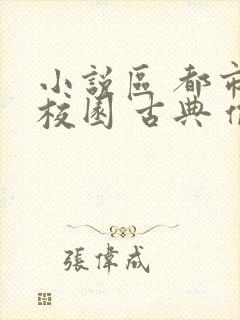 小說區 都市
校園 古典
張偉成